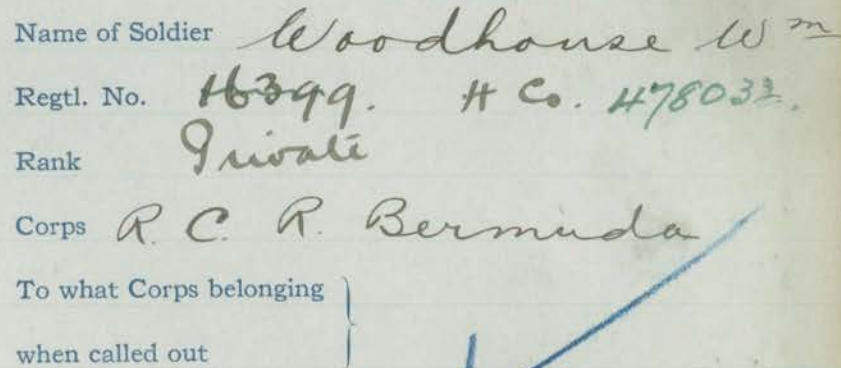 Name of Soldier Woodhouse Wm
Regtl. No. 16399. H Co. 478033.
Rank Private
Corps R. C. R. Bermuda
To what Corps belonging
when called out